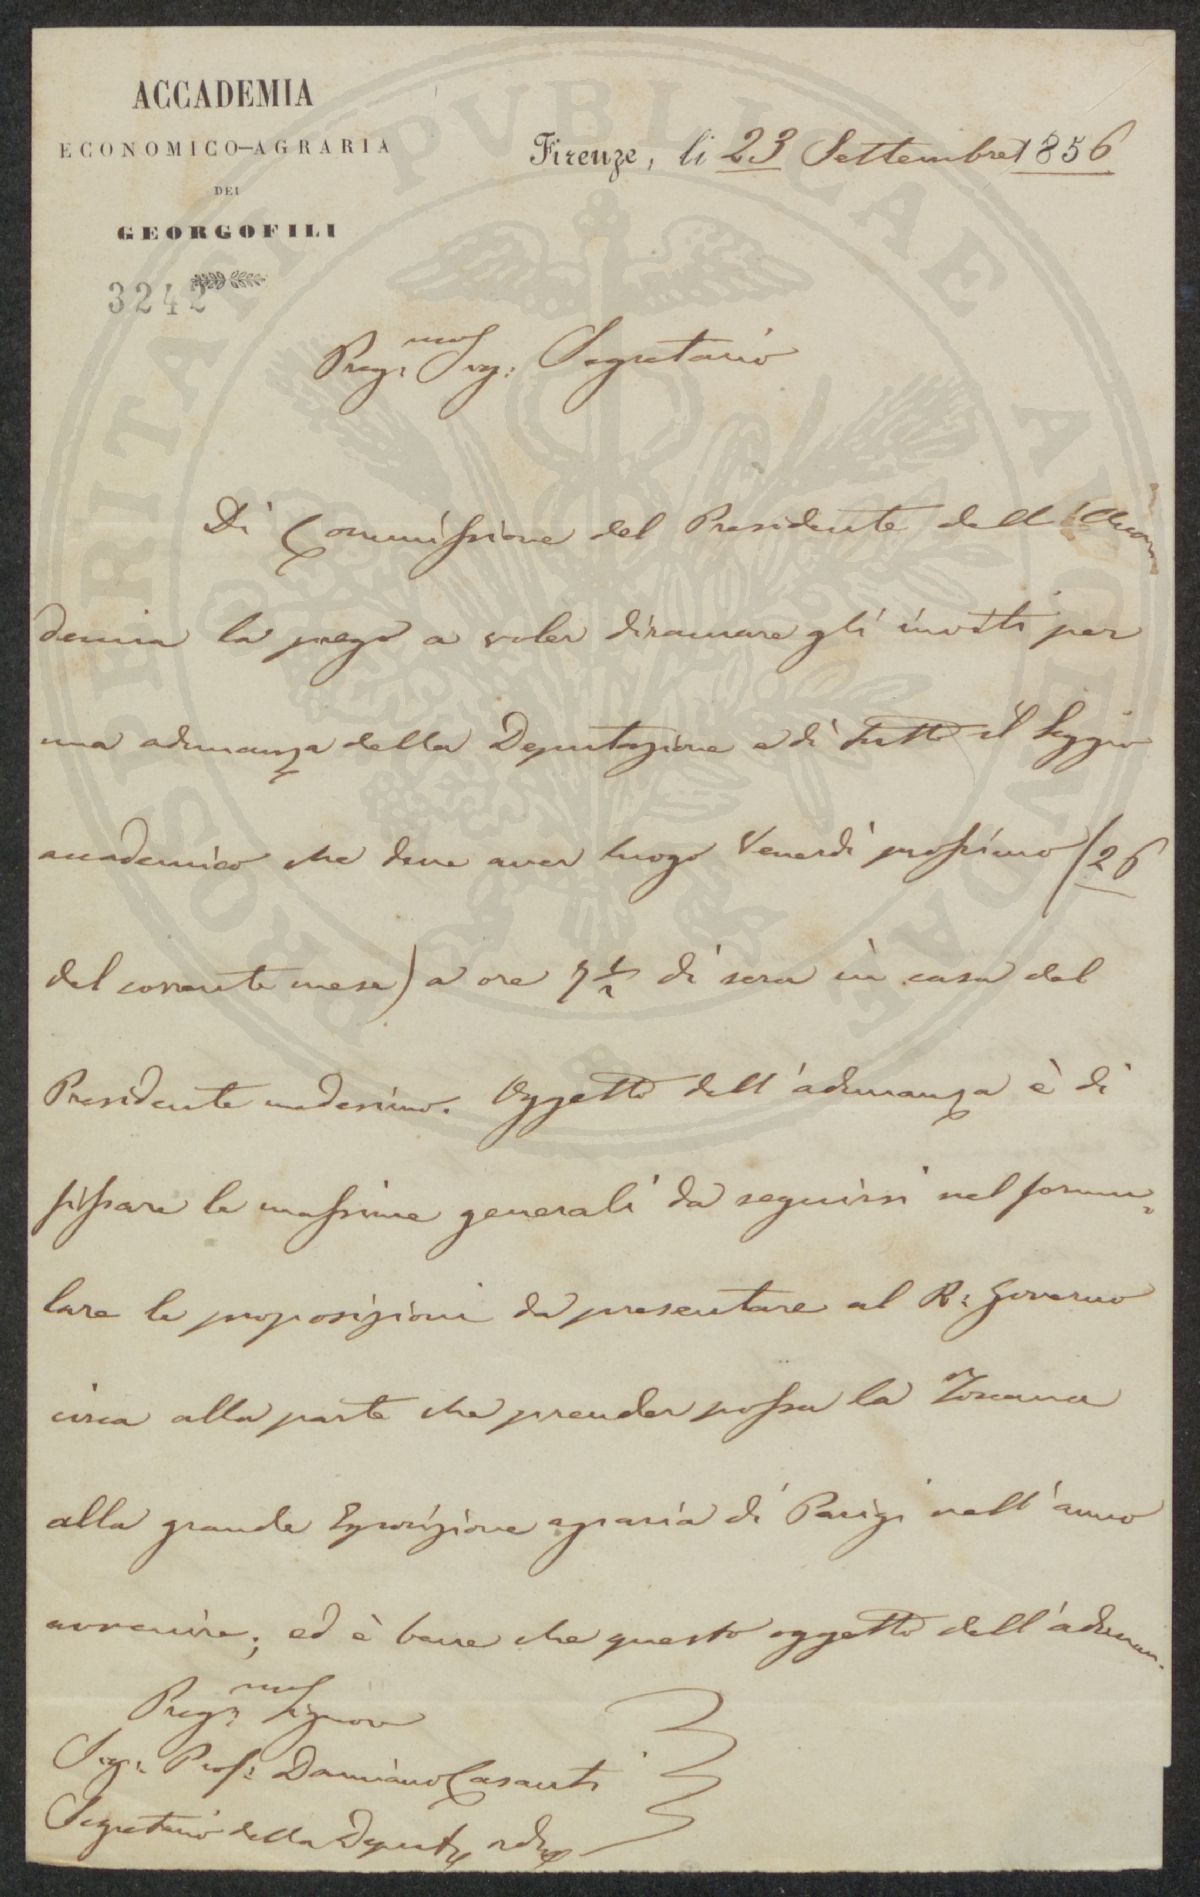 ACCADEMIA
ECONOMICO-AGRARIA
DEI
GEORGOFILI
3242
Firenze, li 23 Settembre 1856
Preg:mo Sig: Segretario
Di Commissione del Presidente dell'Acca
demia la prego a voler diramare gli inviti per
una adunanza della Deputazione e di tutto il Seggio
accademico che deve aver luogo Venerdì prossimo (26
del corrente mese) a ore 7 1/2 di sera in casa del
Presidente medesimo. Oggetto dell'adunanza è di
fissare le massime generali da seguirsi nel formu-
lare le proposizioni da presentare al R: Governo
circa alla parte che prender possa la Toscana
alla grande Esposizione agraria di Parigi nell'anno
avvenire; ed è bene che questo oggetto dell'adunan-
Preg:mo Signore
Sig: Prof: Damiano Casanti
Segretario della Deputaz
PROSPERITATI PVBLICAE AVGENDAE